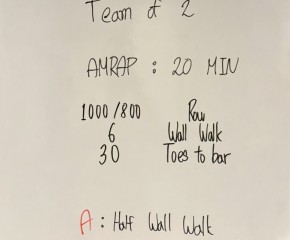 Team of 2
AMRAP : 20 MIN
1000/800 Row
6 Wall Walk
30 Toes to bar
A : Half Wall Walk